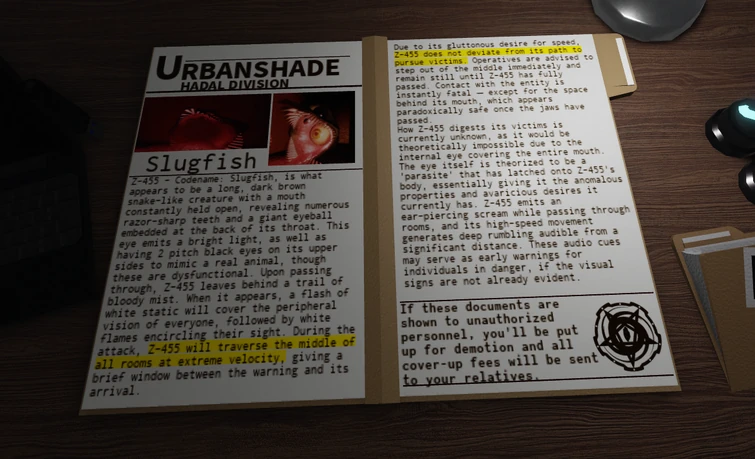 URBANSHADE
HADAL DIVISION
Slugfish
Z-455 - Codename: Slugfish, is what
appears to be a long, dark brown
snake-like creature with a mouth
constantly held open, revealing numerous
razor-sharp teeth and a giant eyeball
embedded at the back of its throat. This
eye emits a bright light, as well as
having 2 pitch black eyes on its upper
sides to mimic a real animal, though
these are dysfunctional. Upon passing
through, Z-455 leaves behind a trail of
bloody mist. When it appears, a flash of
white static will cover the peripheral
vision of everyone, followed by white
flames encircling their sight. During the
attack, Z-455 will traverse the middle of
all rooms at extreme velocity, giving a
brief window between the warning and its
arrival.
Due to its gluttonous desire for speed,
Z-455 does not deviate from its path to
pursue victims. Operatives are advised to
step out of the middle immediately and
remain still until Z-455 has fully
passed. Contact with the entity is
instantly fatal — except for the space
behind its mouth, which appears
paradoxically safe once the jaws have
passed.
How Z-455 digests its victims is
currently unknown, as it would be
theoretically impossible due to the
internal eye covering the entire mouth.
The eye itself is theorized to be a
'parasite' that has latched onto Z-455's
body, essentially giving it the anomalous
properties and avaricious desires it
currently has. Z-455 emits an
ear-piercing scream while passing through
rooms, and its high-speed movement
generates deep rumbling audible from a
significant distance. These audio cues
may serve as early warnings for
individuals in danger, if the visual
signs are not already evident.
If these documents are
shown to unauthorized
personnel, you'll be put
up for demotion and all
cover-up fees will be sent
to your relatives.